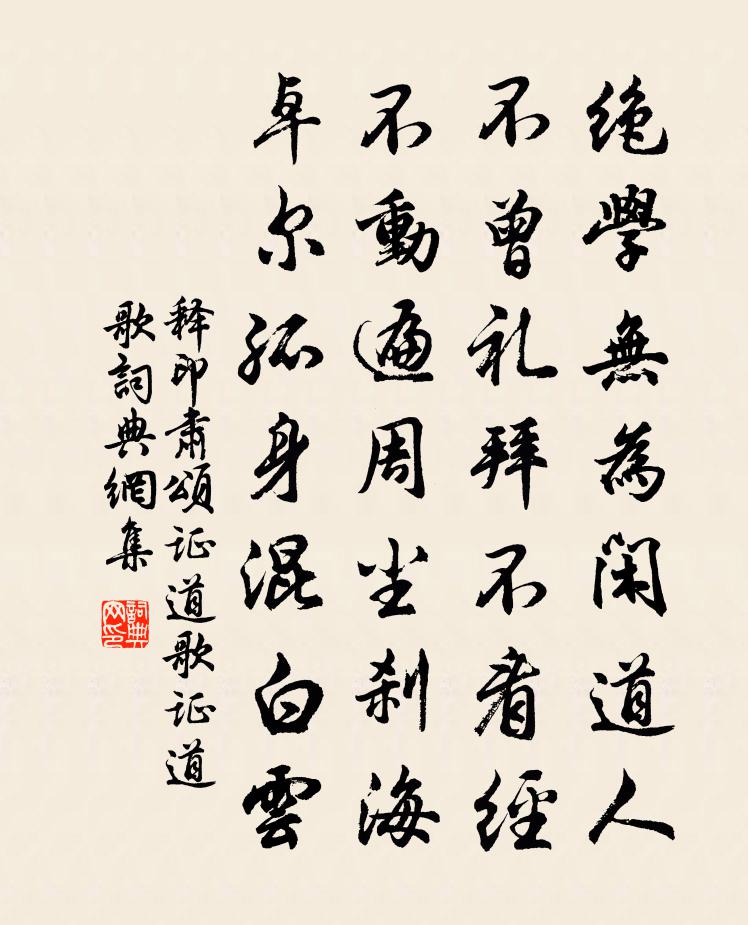 绝學無為閑道人
不曾礼拜不看經
不動遍周尘刹海
卓尔孤身混白雲
释印肃頌证道歌证道
歌詞典網集
詞典网印